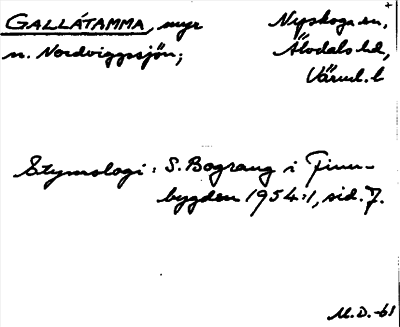 GALLÁTAMMA, myr
n. Nordviggssjön;
Nyskoga sn,
Älvdals hd,
Värml. l
Etymologi: S. Bograng i Finn-
bygden 1954:1, sid. 7.
M.D.-61